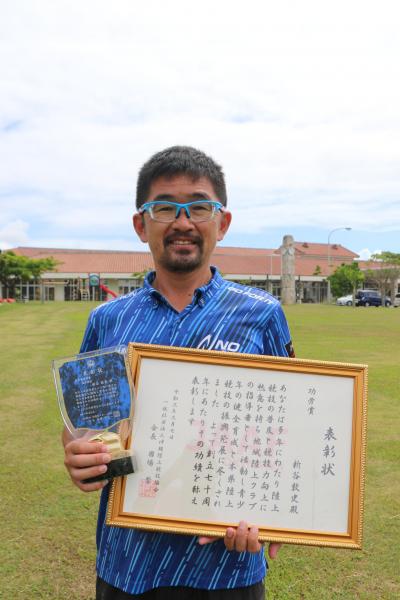 功労賞
表彰状
新谷敦史殿
あなたは長年にわたり陸上
競技の普及と競技力向上に
熱意を持ち地域陸上クラブ
の指導者として活動し青少
年の健全育成と本県陸上
競技の振興発展に尽くされ
ました よって創立七十周
年にあたりその功績を称え
表彰します
令和三年三月七日
会長
NO